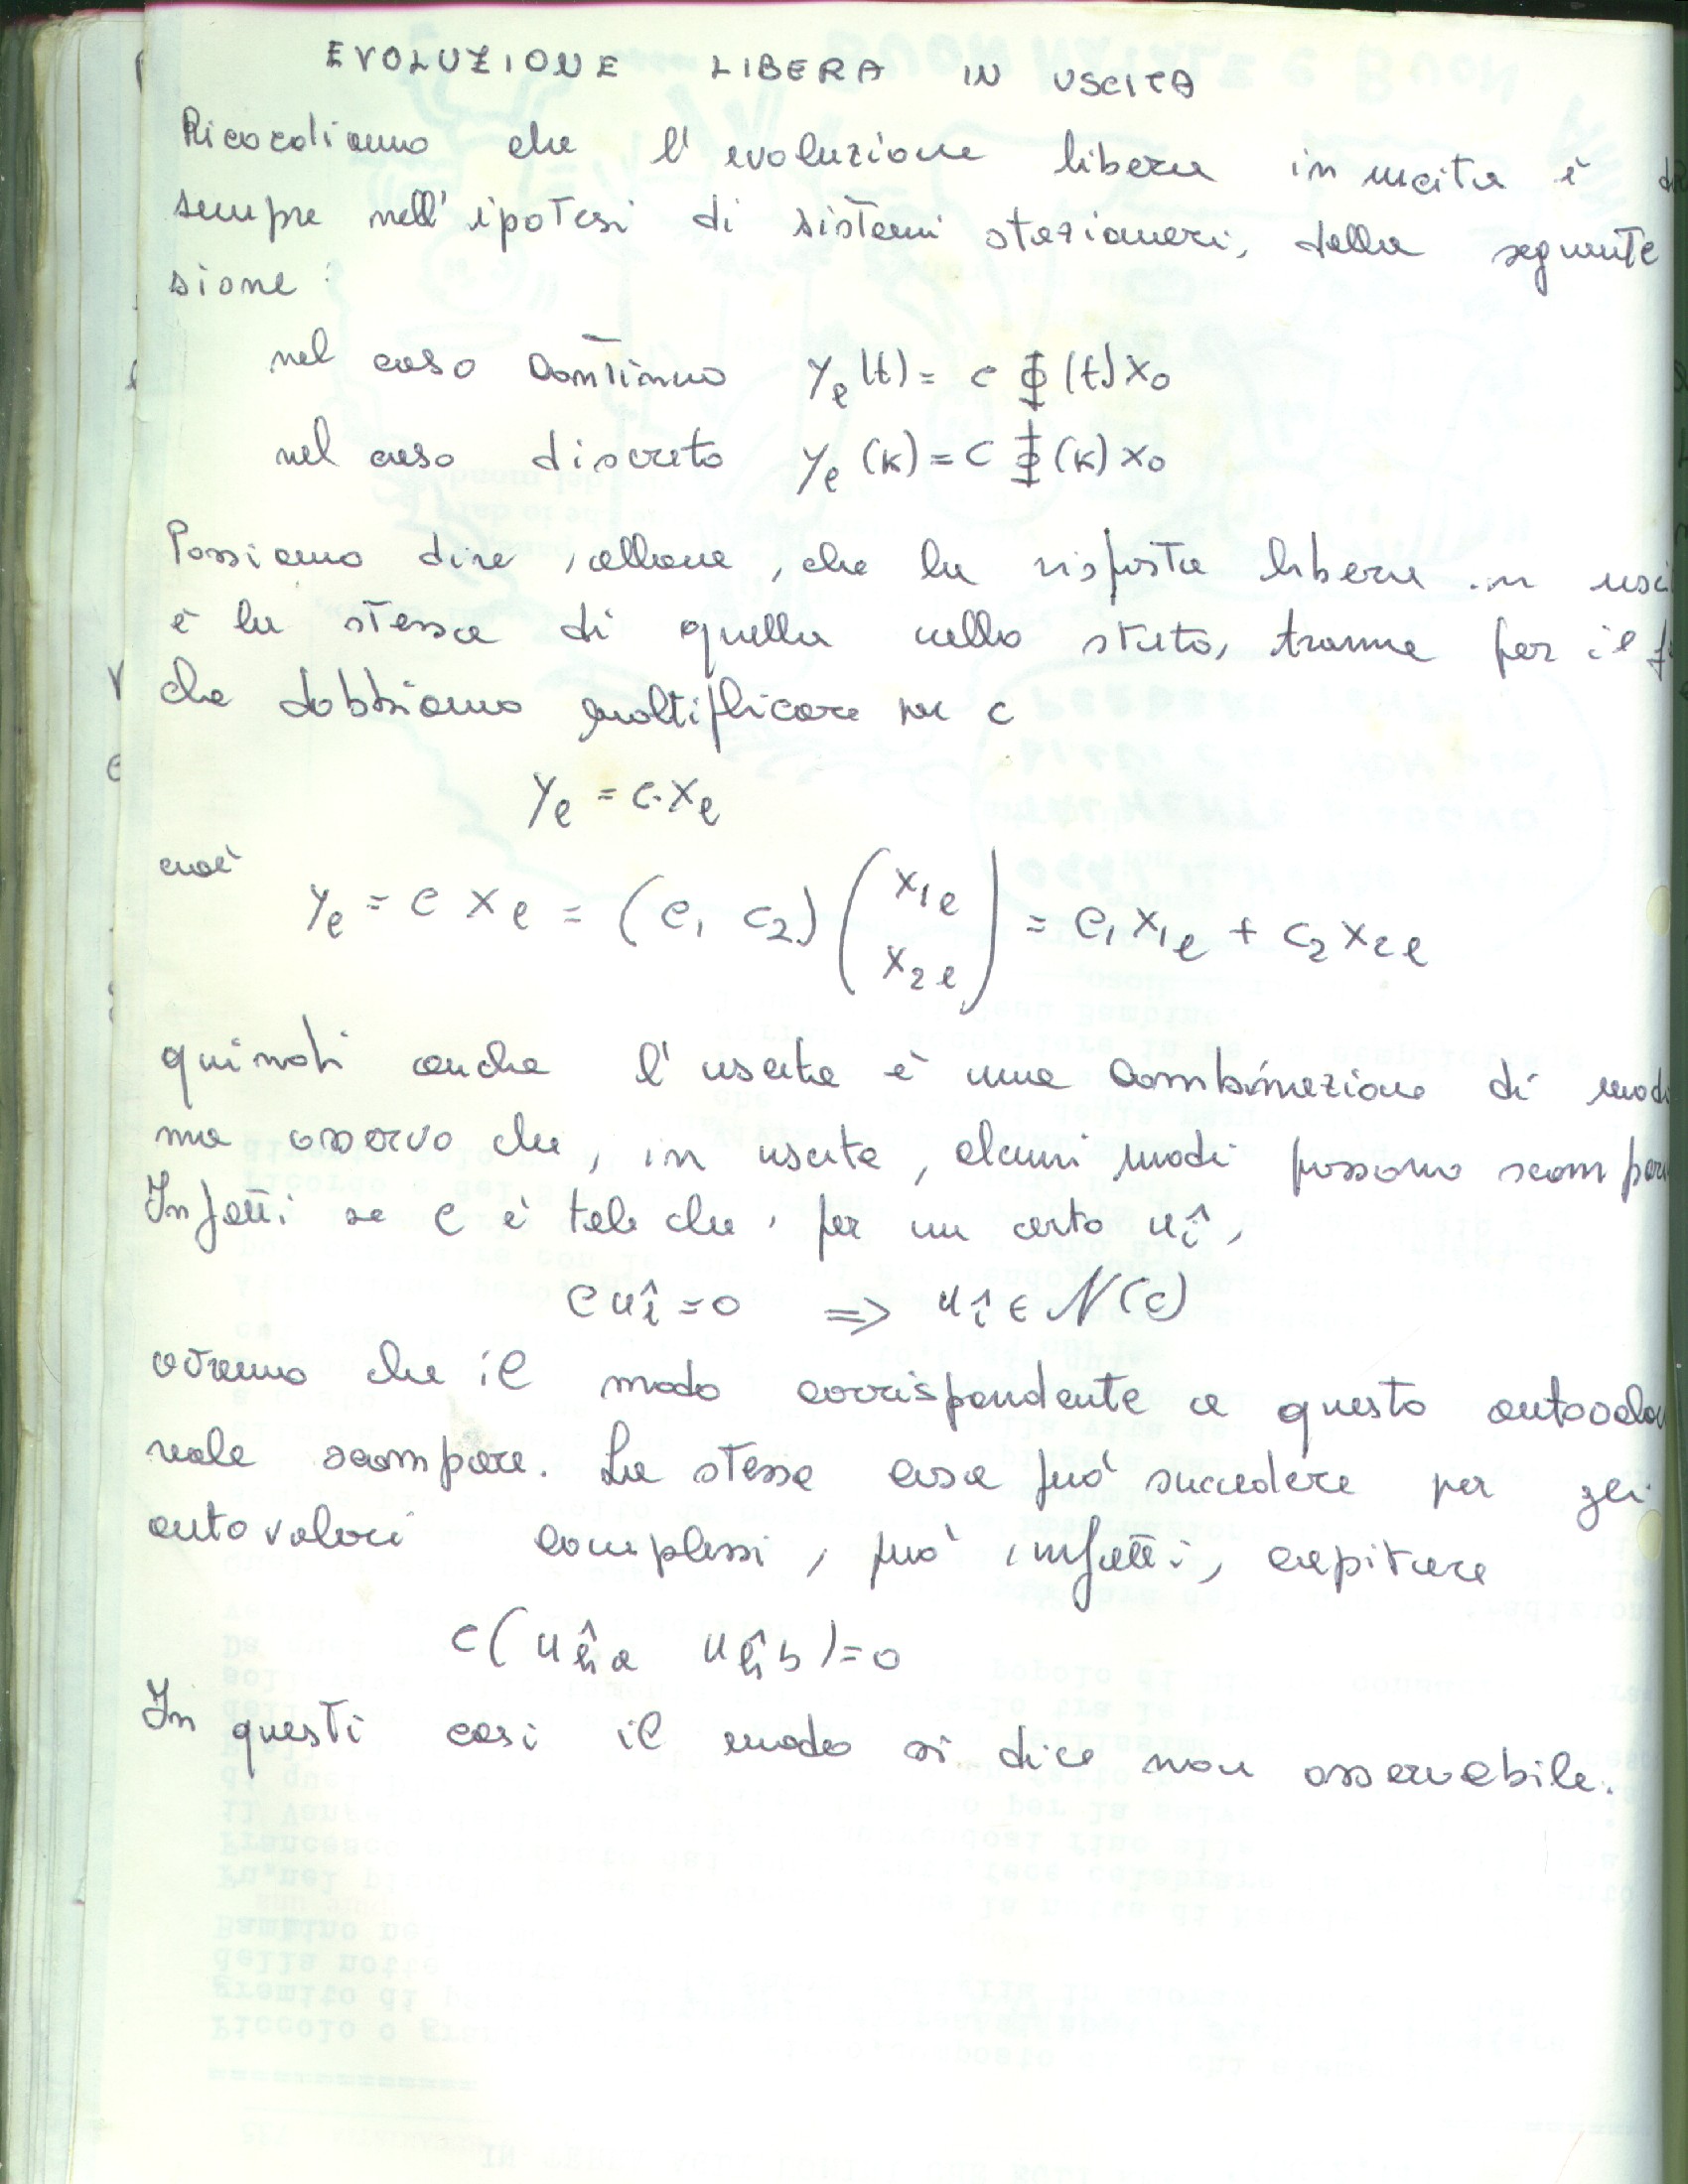 EVOLUZIONE LIBERA IN USCITA
Ricordiamo che l'evoluzione libera in uscita è
sempre nell'ipotesi di sistemi stazionari, dalla seguente
sione:
nel caso continuo y_l(t) = C Φ(t) x₀
nel caso discreto y_l(k) = C Φ(k) x₀
Possiamo dire, allora, che la risposta libera in usci
è la stessa di quella nello stato, tranne per il
che dobbiamo moltiplicare per C
y_l = C·x_l
cioè
y_l = C x_l = (c₁ c₂) (x₁l x₂l) = c₁ x₁l + c₂ x₂l
quindi anche l'uscita è una combinazione di modi
ma osservo che, in uscita, alcuni modi possono scompar
Infatti se C è tale che, per un certo u_î,
C u_î = 0 => u_î ∈ N(C)
avremo che il modo corrispondente a questo autovalo
reale scompare. La stessa cosa può succedere per gli
autovalori complessi, può, infatti, capitare
C(u_ĥa u_ĥb) = 0
In questi casi il modo si dice non osservabile.